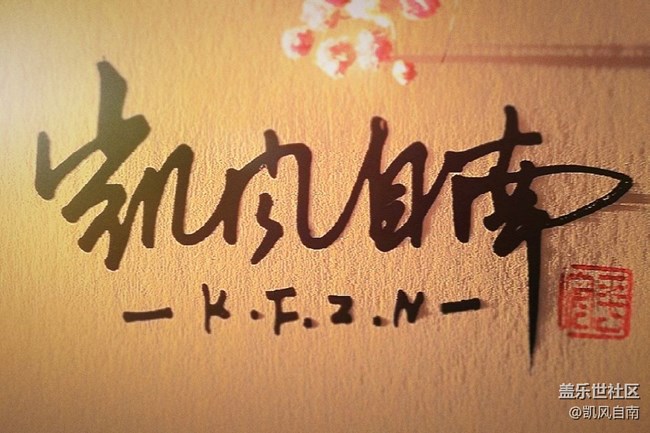 凯风自南
— K.F.Z.N —
盖乐世社区
@凯风自南